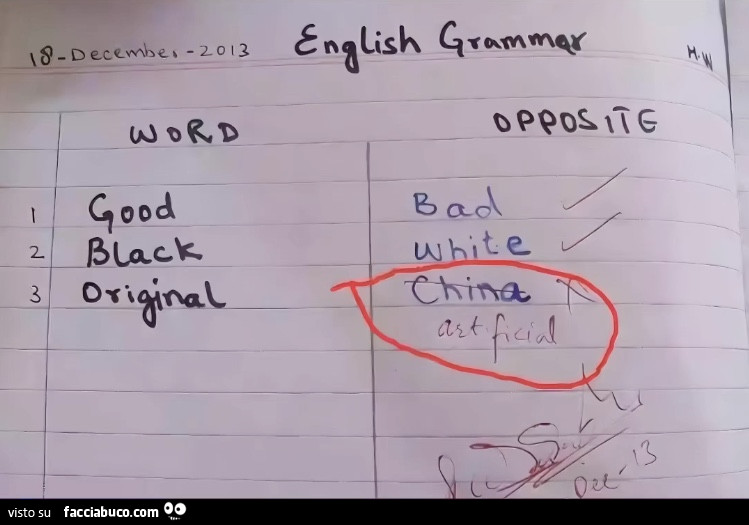 18-December-2013 English Grammar H.W
WORD OPPOSITE
1 Good Bad
2 Black White
3 Original China
artificial
Dec-13
visto su facciabuco.com